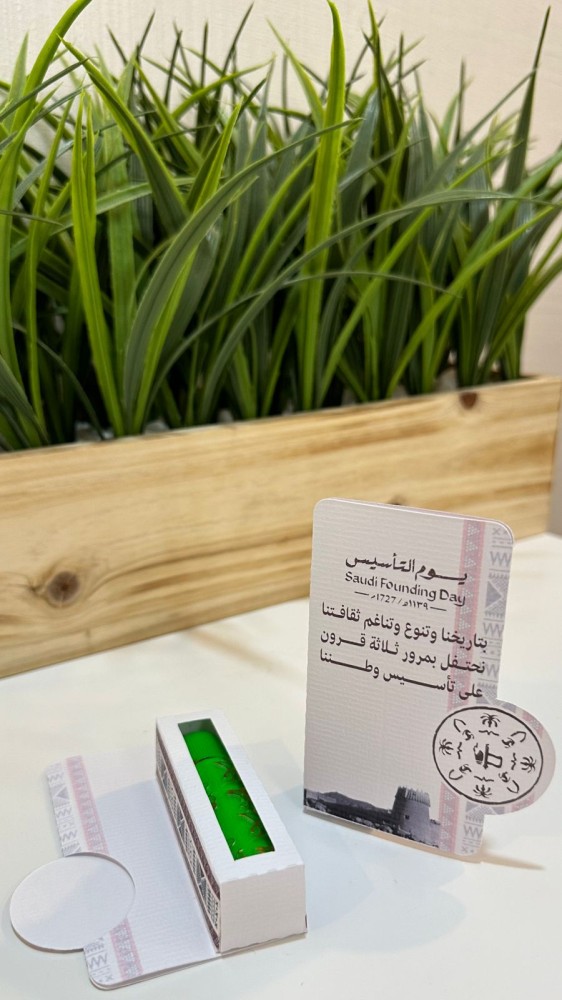 يوم التأسيس
Saudi Founding Day
١١٣٩هـ / 1727م
بتاريخنا وتنوع وتناغم ثقافتنا
نحتفل بمرور ثلاثة قرون
على تأسيس وطننا